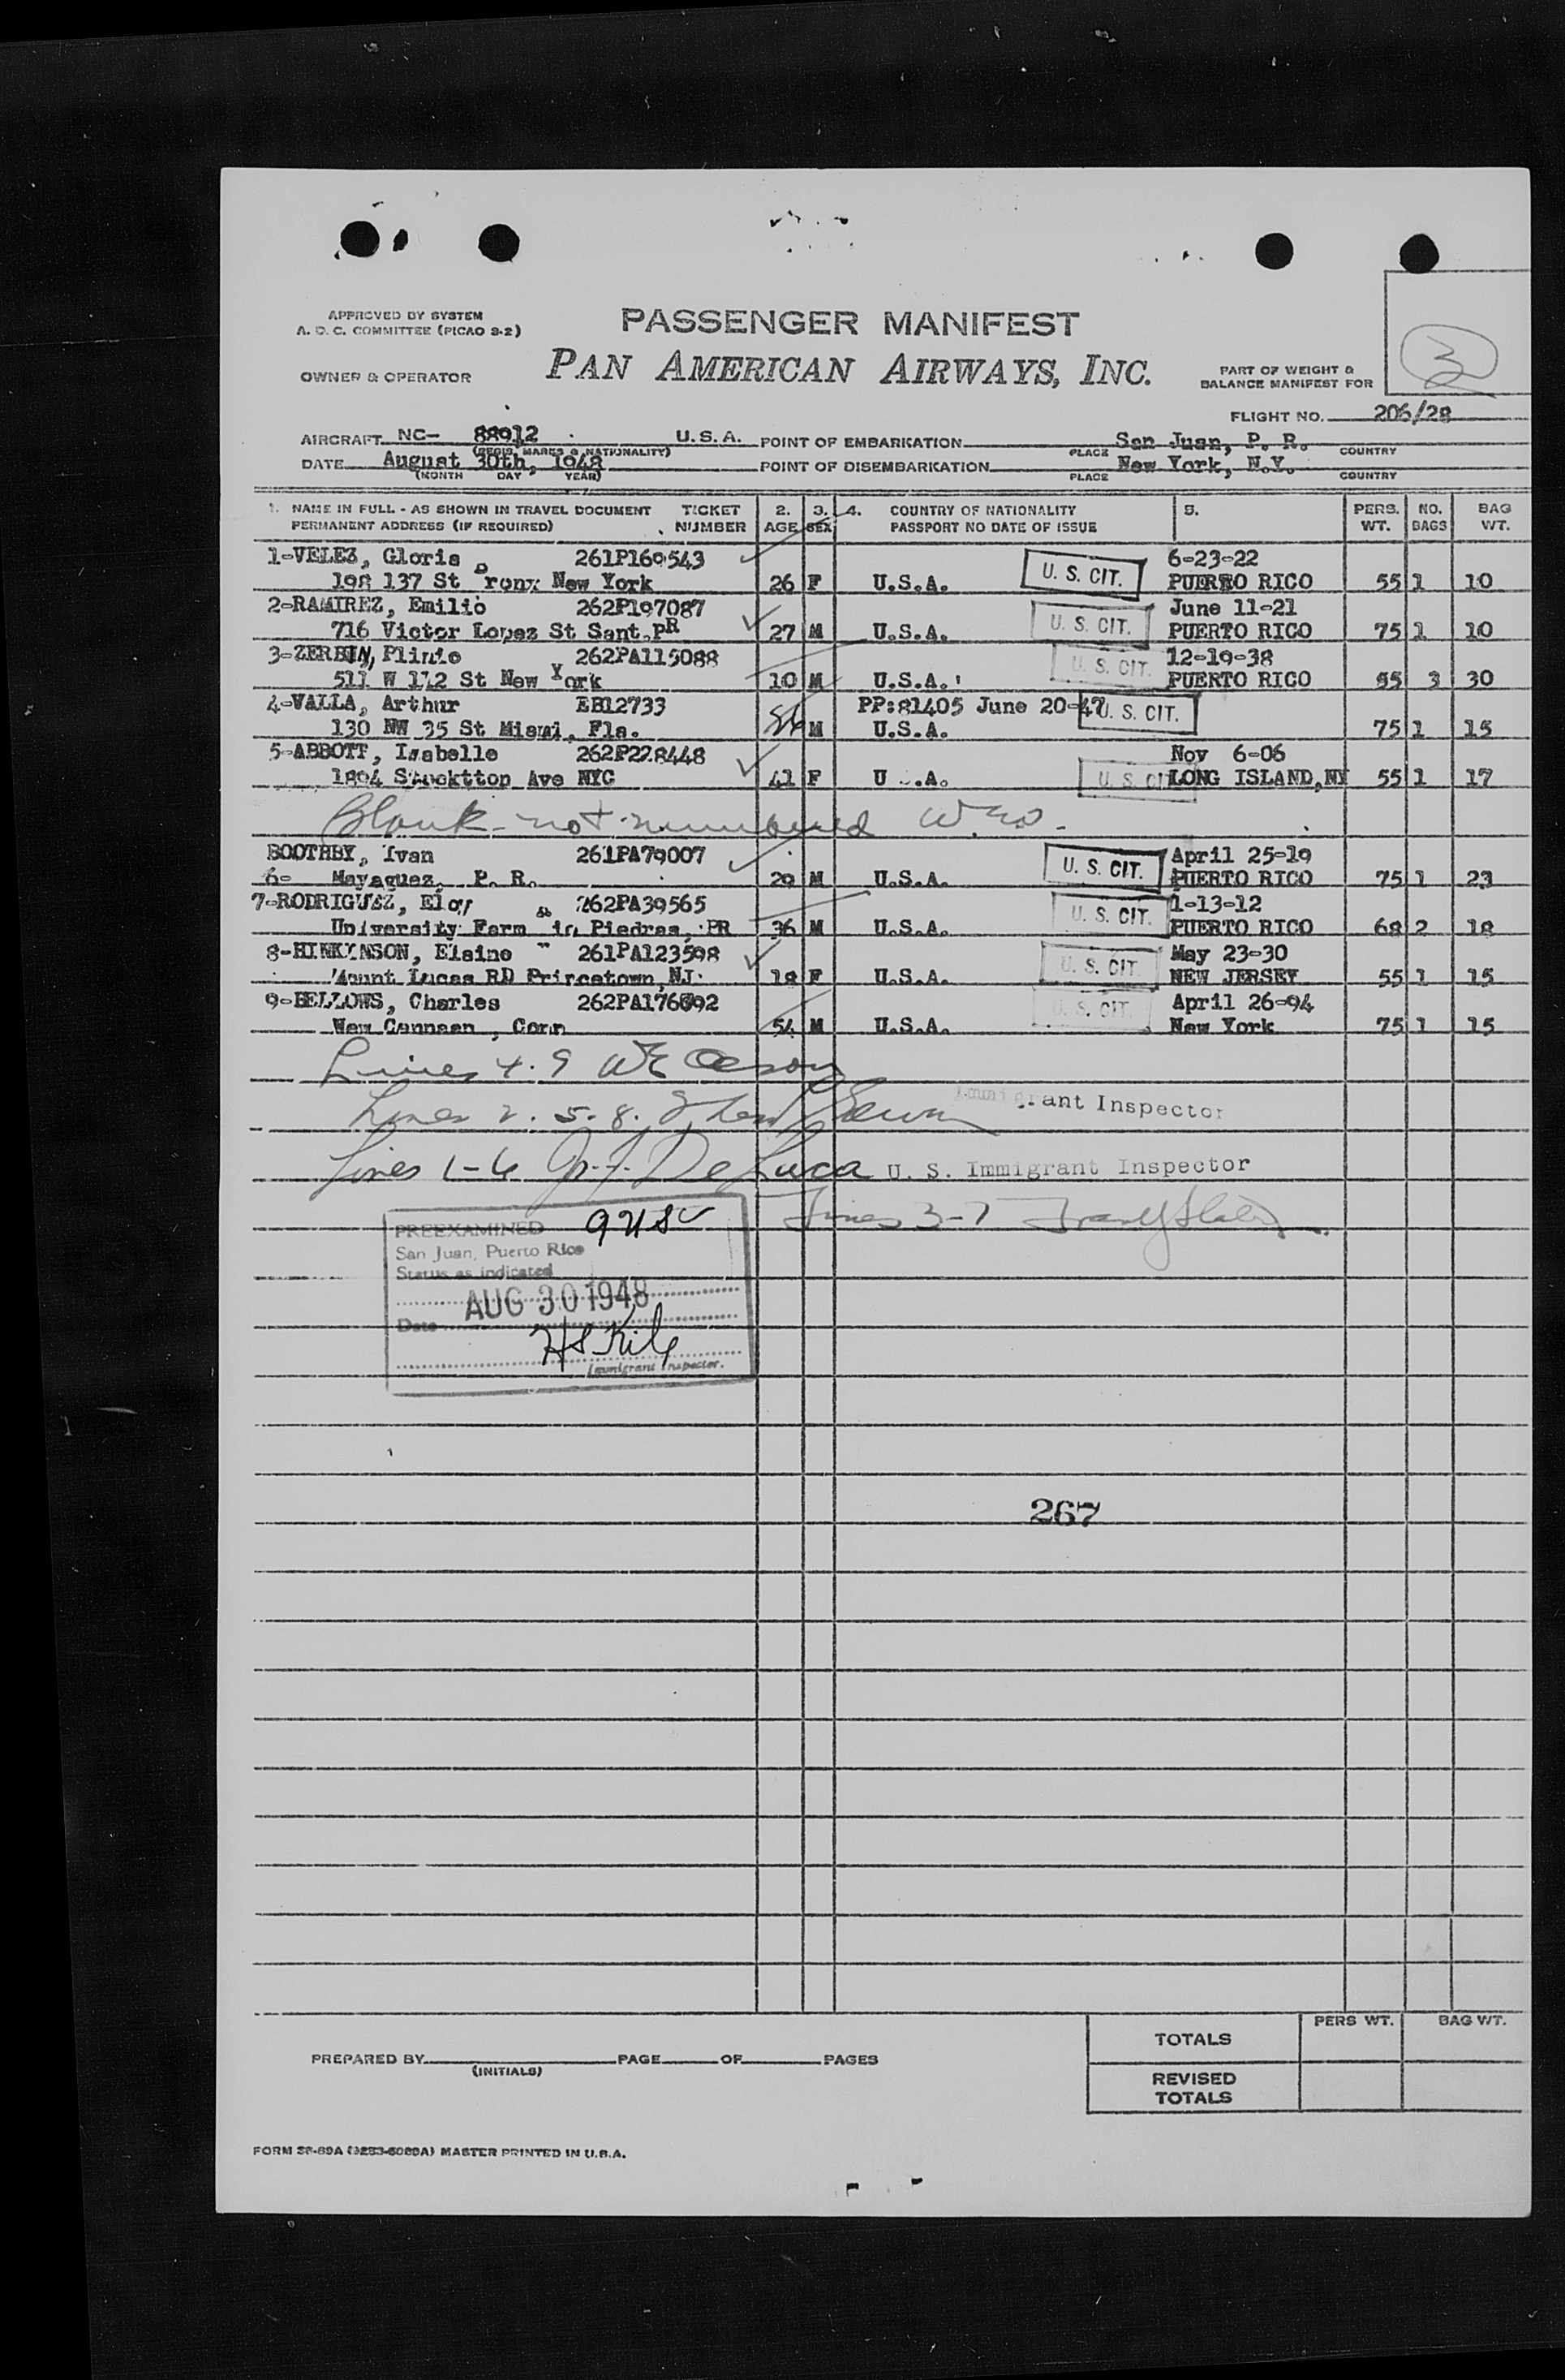 APPROVED BY SYSTEM
A. D. C. COMMITTEE (PICAO S-2)
PASSENGER MANIFEST
PAN AMERICAN AIRWAYS, INC.
OWNER & OPERATOR
PART OF WEIGHT &
BALANCE MANIFEST FOR
3
FLIGHT NO. 206/28
AIRCRAFT NC- 88912 U.S.A. POINT OF EMBARKATION San Juan, P. R.
(REGIS. MARKS & NATIONALITY) PLACE COUNTRY
DATE August 30th, 1948 POINT OF DISEMBARKATION New York, N.Y.
(MONTH DAY YEAR) PLACE COUNTRY
1. NAME IN FULL - AS SHOWN IN TRAVEL DOCUMENT TICKET 2. 3. 4. COUNTRY OF NATIONALITY 5. PERS. NO. BAG
PERMANENT ADDRESS (IF REQUIRED) NUMBER AGE SEX PASSPORT NO DATE OF ISSUE WT. BAGS WT.
1-VELEZ, Gloria 261P169543 6-23-22
198 137 St Bronx New York 26 F U.S.A. U. S. CIT. PUERTO RICO 55 1 10
2-RAMIREZ, Emilio 262P197087 June 11-21
716 Victor Lopez St Sant.PR 27 M U.S.A. U. S. CIT. PUERTO RICO 75 1 10
3-ZERBIN, Plinio 262PA115088 12-19-38
511 W 112 St New York 10 M U.S.A. U. S. CIT. PUERTO RICO 55 3 30
4-VALLA, Arthur EB12733 PP:81405 June 20-47 U. S. CIT.
130 NW 35 St Miami, Fla. M U.S.A. 75 1 15
5-ABBOTT, Isabelle 262P228448 Nov 6-06
1894 Stocktton Ave NYC 41 F U .A. U. S. CIT LONG ISLAND, NY 55 1 17
Blank - not numbered W.E.O.
BOOTHBY, Ivan 261PA79007 April 25-19
6- Mayaguez, P. R. 29 M U.S.A. U. S. CIT. PUERTO RICO 75 1 23
7-RODRIGUEZ, Eloy 262PA39565 1-13-12
University Farm Piedras, PR 36 M U.S.A. U. S. CIT. PUERTO RICO 68 2 18
8-HINKINSON, Elaine 261PA123598 May 23-30
Mount Lucas RD Princetown, NJ 18 F U.S.A. U. S. CIT. NEW JERSEY 55 1 15
9-BELLOWS, Charles 262PA176092 April 26-94
New Cannaan, Conn 54 M U.S.A. U. S. CIT. New York 75 1 15
Lines 4.9
Lines 2. 5. 8. Immigrant Inspector
Lines 1-6 De Luca U. S. Immigrant Inspector
Lines 3-7
PREEXAMINED 9 USC
San Juan, Puerto Rico
Status as indicated
AUG 30 1948
Date
Immigrant Inspector.
267
TOTALS PERS WT. BAG WT.
PREPARED BY PAGE OF PAGES
(INITIALS)
REVISED
TOTALS
FORM MASTER PRINTED IN U.S.A.